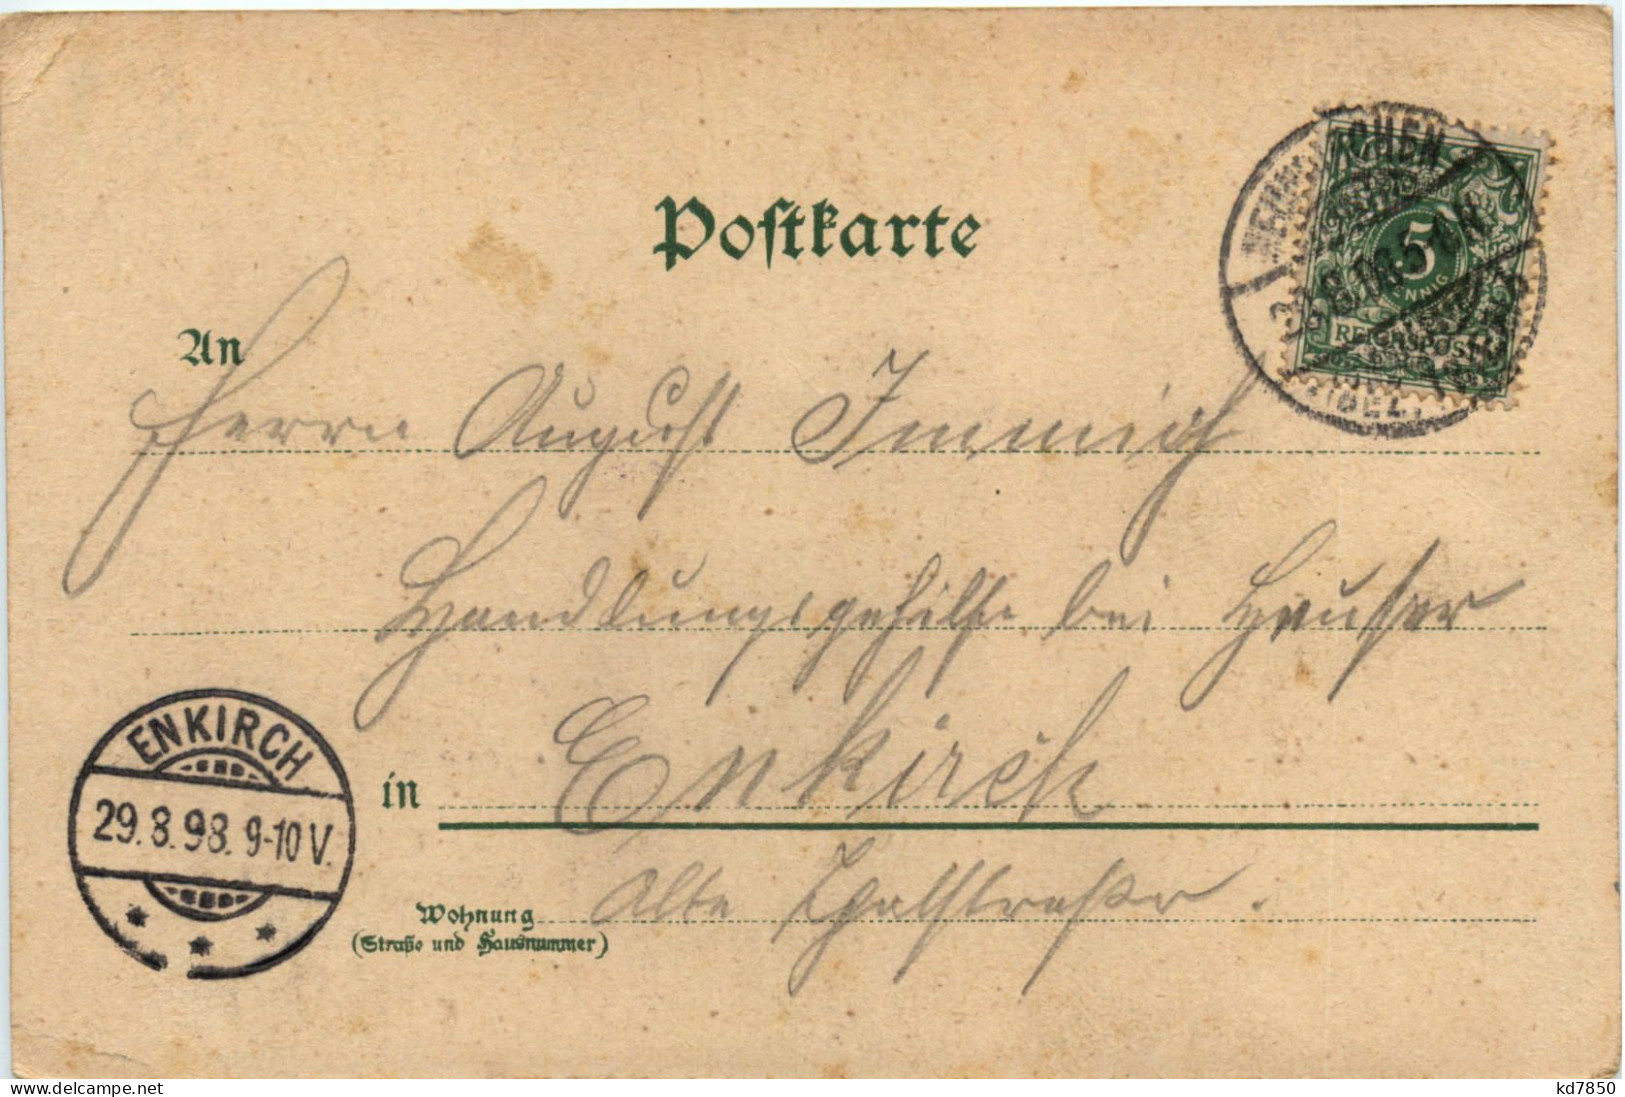 Postkarte
NEUNKIRCHEN
5
REICHSPOST
An
Herrn August Immich
Handlungsgehilfe bei Heusser
ENKIRCH
29.8.98. 9-10 V.
in Enkirch
Wohnung
(Straße und Hausnummer)
Alte
www.delcampe.net
kd7850